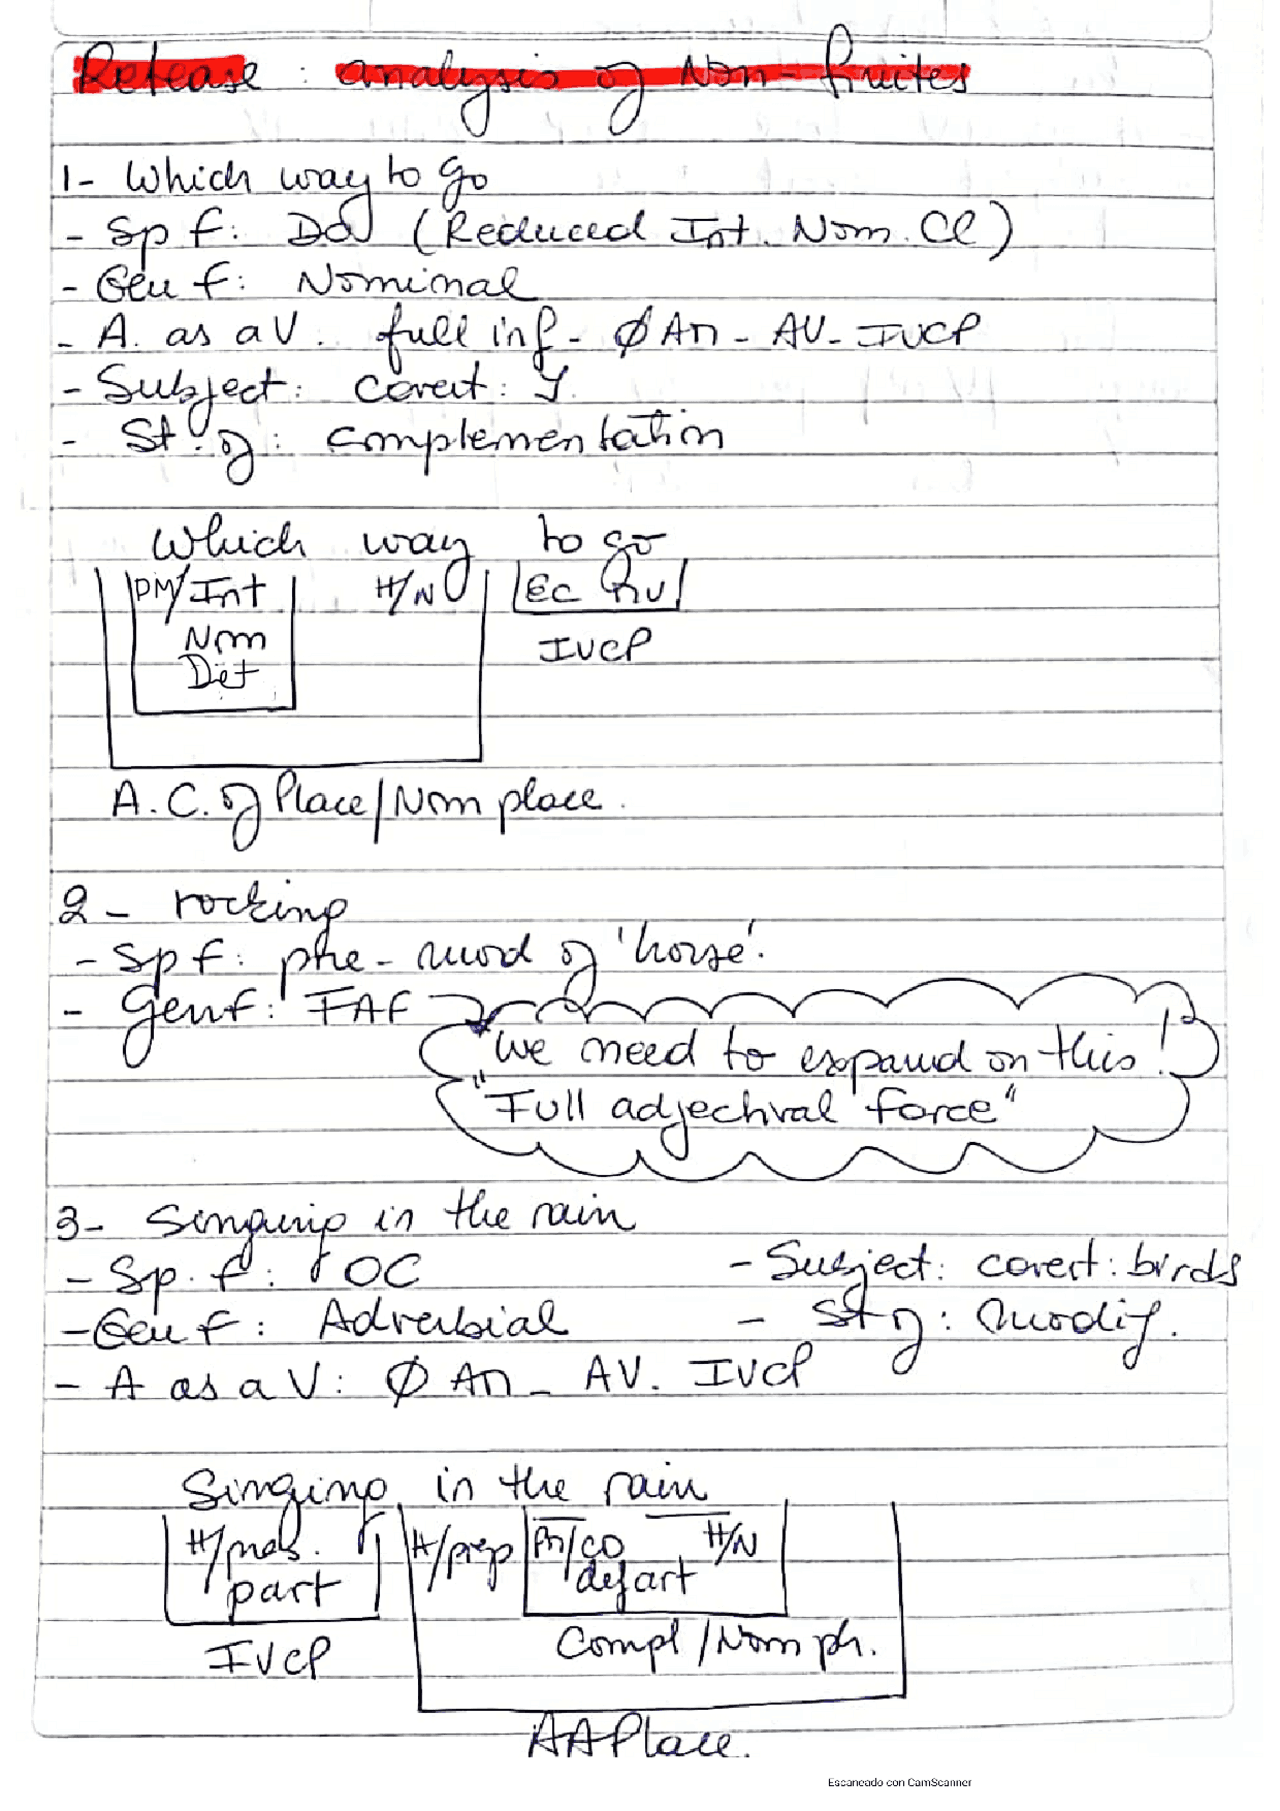 Release : analysis of Non-finites
1- Which way to go
- Sp f: DO (Reduced Int. Nom. Cl)
- Gen f: Nominal
- A. as a V. full inf - Ø An - AV - IVCP
- Subject: covert: I.
- St. of: complementation
Which way to go
PM/Int H/N
Nom
Det
IVCP
A.C. of Place/Nom place.
2- rocking
- Sp f: pre-mod of 'horse'.
- Gen f: FAF
"we need to expand on this!
"Full adjectival force"
3- Singing in the rain
- Sp. f: OC - Subject: covert: birds
- Gen f: Adverbial - St of: modif.
- A as a V: Ø An - AV. IVCP
Singing in the rain
H/pres. H/prep H/N
part def art
IVCP Compl/Nom ph.
AAPlace.
Escaneado con CamScanner